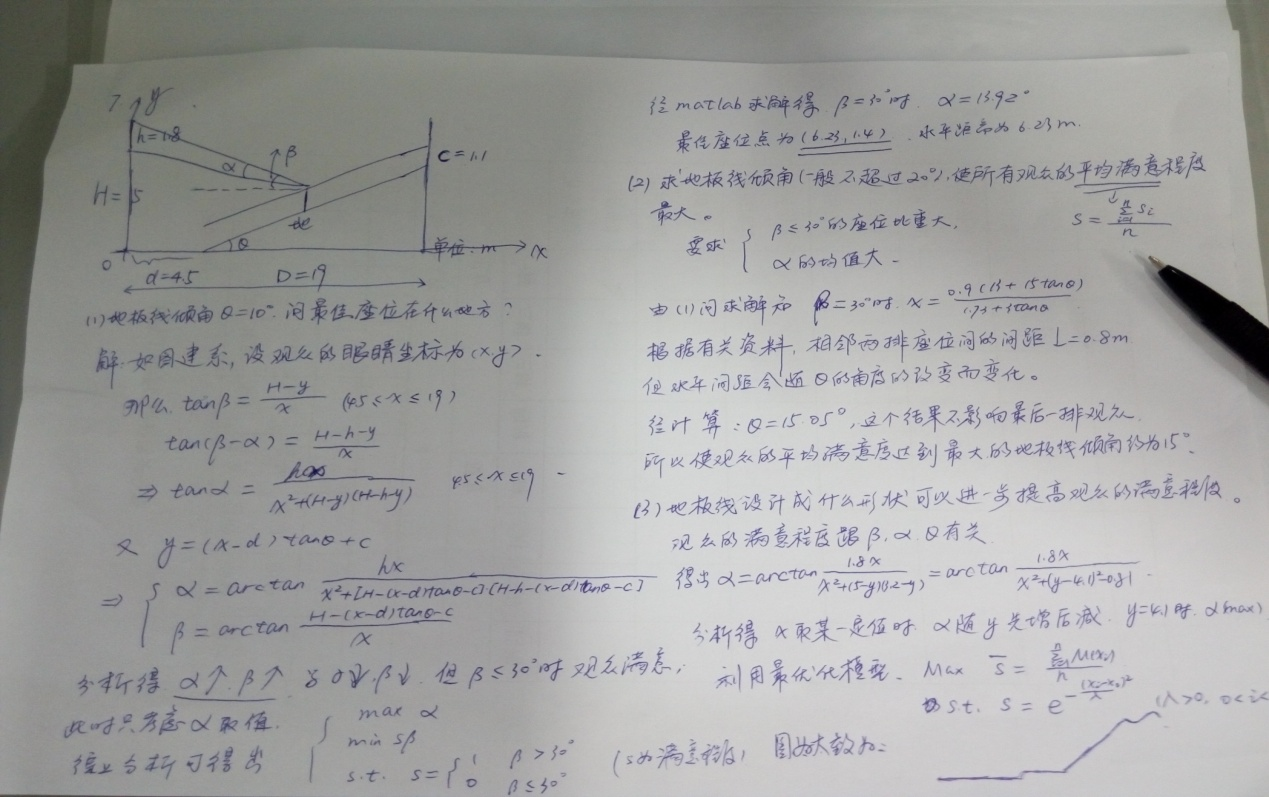 y
h=1.8
α
β
C=1.1
H=5
θ
0
单位: m
x
d=4.5
D=19
(1) 地板线倾角 θ=10°. 问最佳座位在什么地方?
解: 如图建系, 设观众的眼睛坐标为(x y).
那么 tanβ = (H-y)/x (4.5≤x≤19)
tan(β-α) = (H-h-y)/x
⇒ tanα = hx/(x²+(H-y)(H-h-y)) 4.5≤x≤19
又 y=(x-d)tanθ+c
⇒ { α = arctan hx/(x²+[H-(x-d)tanθ-c][H-h-(x-d)tanθ-c]
β = arctan (H-(x-d)tanθ-c)/x
分析得 α↑. β↑ β↓. 但 β≤30°时 观众满意,
此时只考虑 α 取值.
综上分析可得出 { max α
min sβ
s.t. s={ 1 β>30°
0 β≤30° (s为满意程度)
经matlab求解得. β=30°时. α=13.92°
最佳座位点为(6.23,1.4). 水平距离为 6.23 m.
(2) 求地板线倾角(一般不超过20°), 使所有观众的平均满意程度
最大。
s = Σ si / n
要求 { β≤30°的座位比重大,
α的均值大.
由(1)问求解知 β=30°时. x=
根据有关资料, 相邻两排座位间的间距 L=0.8m
但水平间距会随θ的角度的改变而变化。
经计算: θ=15.05°, 这个结果不影响最后一排观众.
所以使观众的平均满意度达到最大的地板线倾角约为15°.
(3) 地板线设计成什么形状可以进一步提高观众的满意程度。
观众的满意程度跟β, α. θ有关.
得出 α=arctan 1.8x/(x²+(5-y)(3.2-y)) = arctan 1.8x/(x²+(y-4.1)²-0.81).
分析得 x取某一定值时. α随y先增后减. y=4.1时. α(max)
利用最优化模型. Max s̄ =
s.t. s = e
(λ>0, 0<i<
图为大致为: